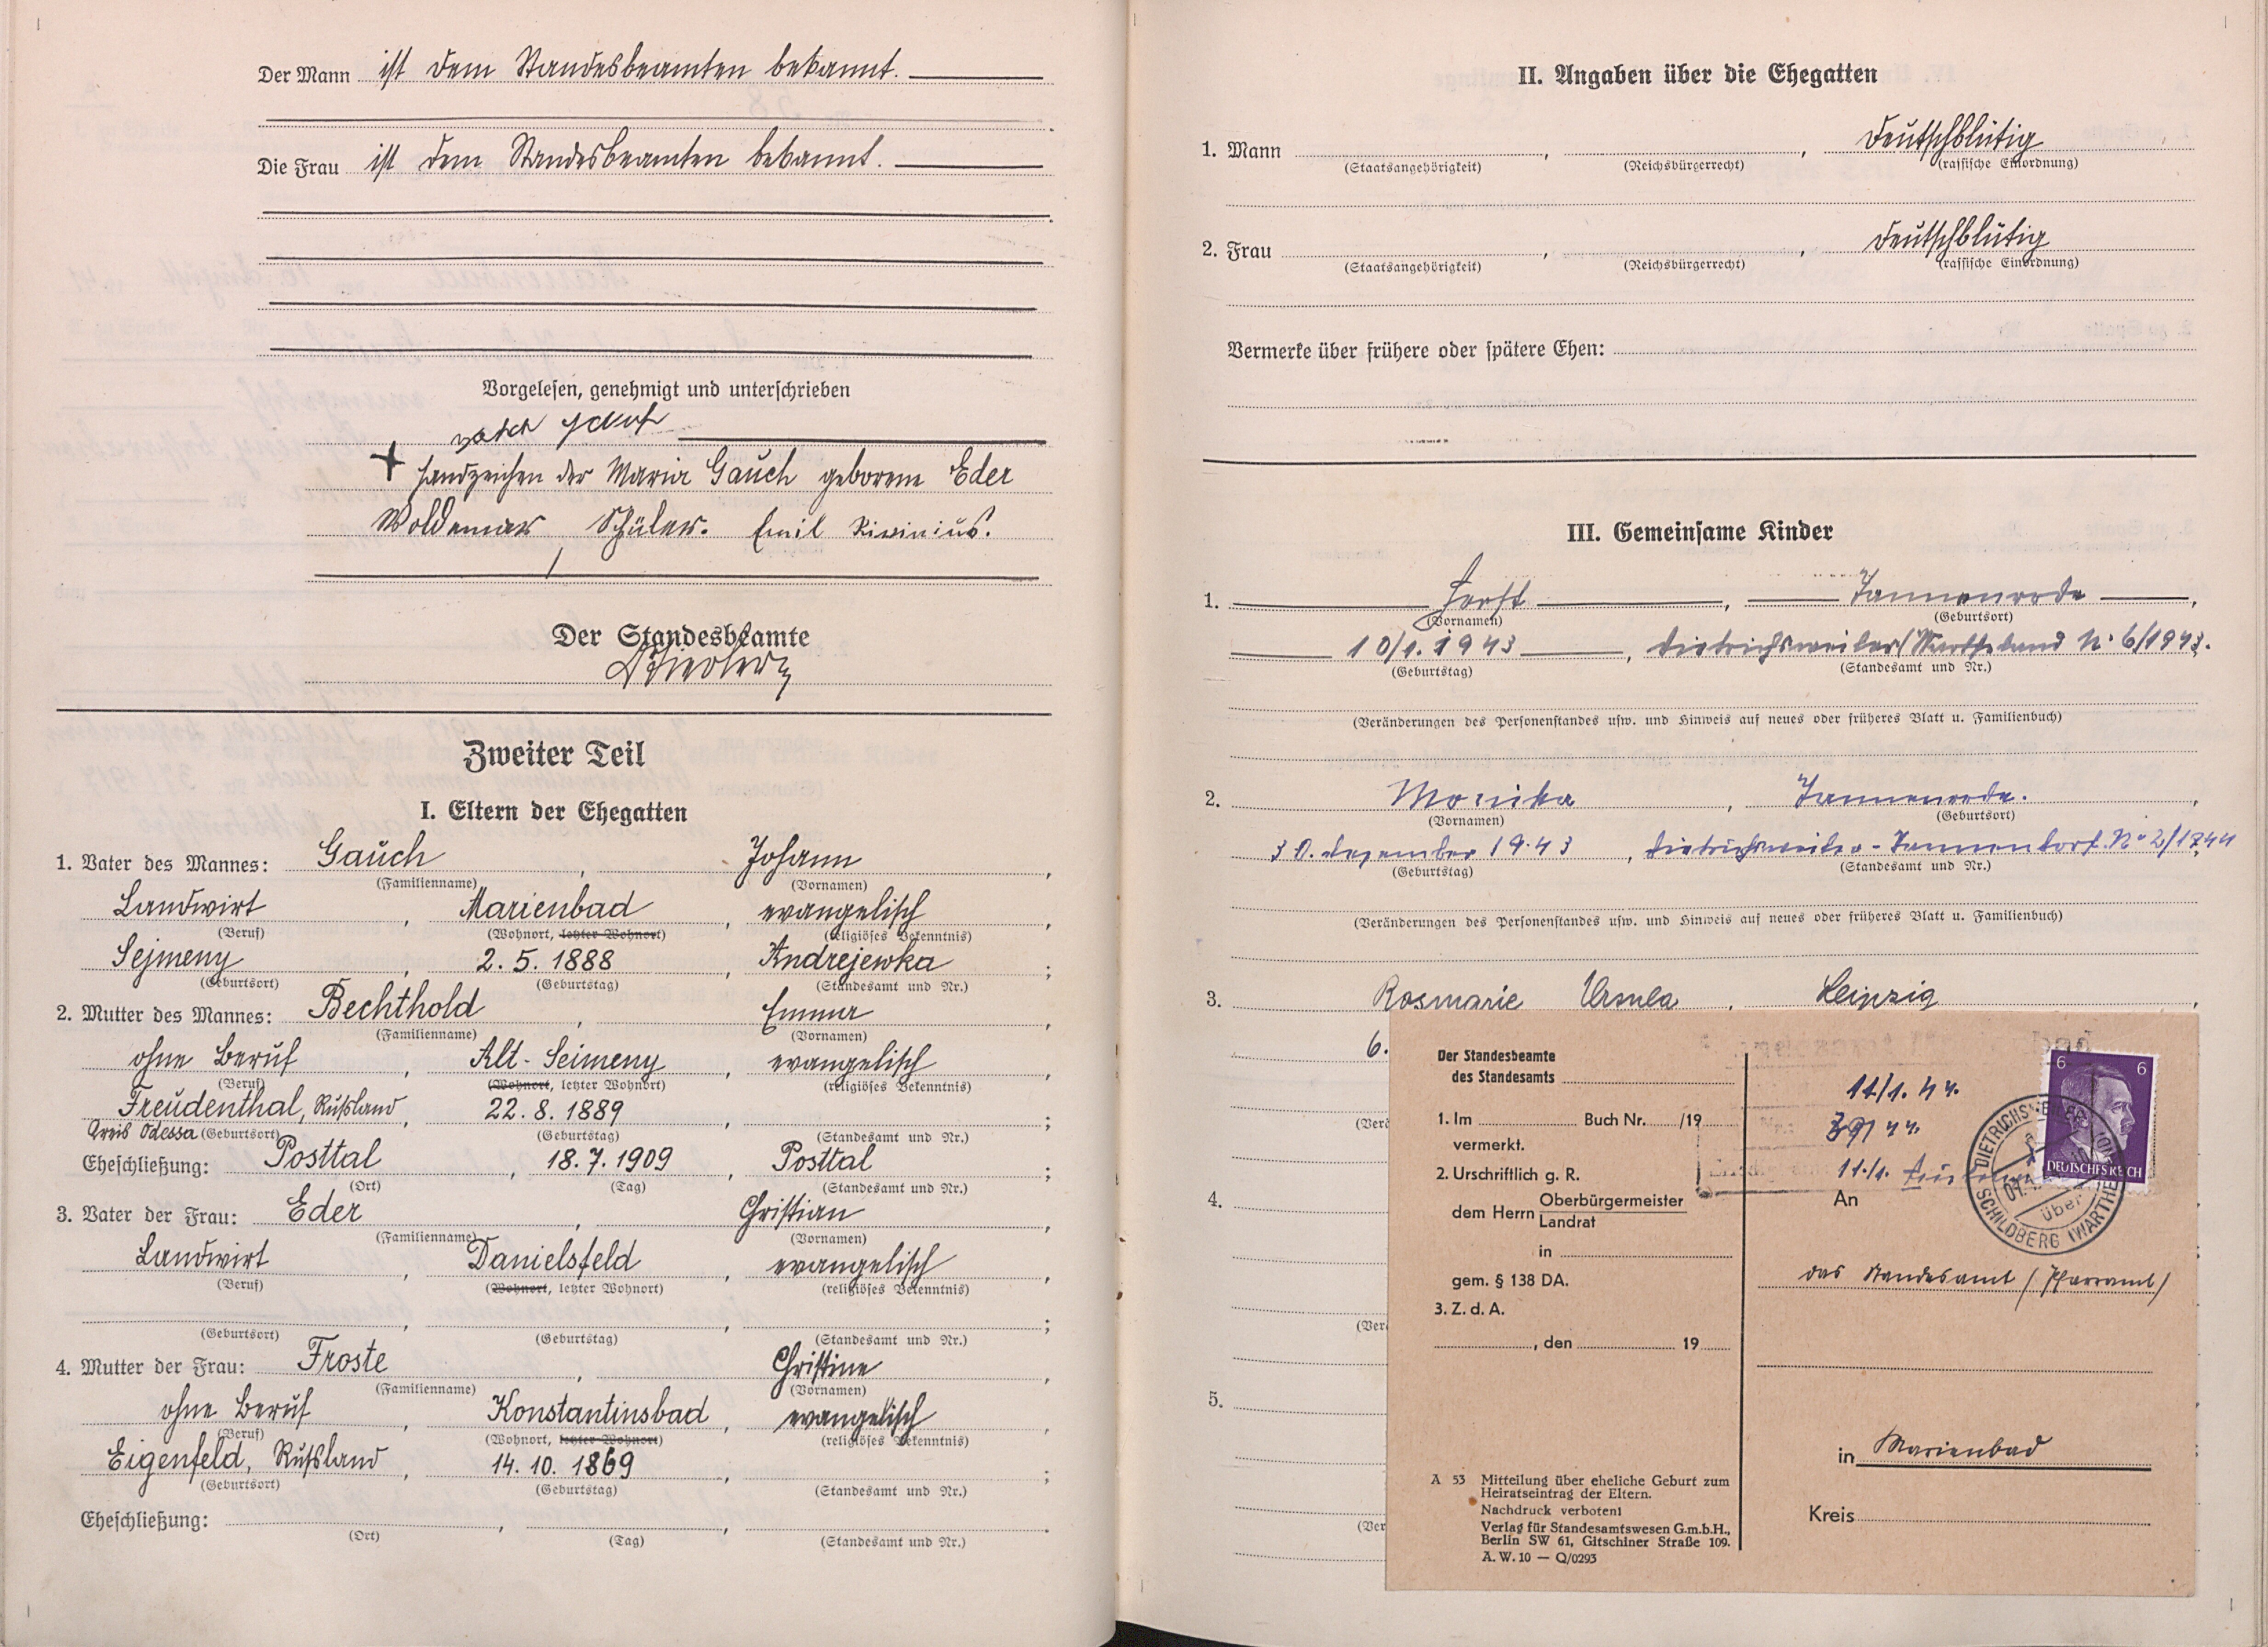 Der Mann ist dem Standesbeamten bekannt.
Die Frau ist dem Standesbeamten bekannt.
Vorgelesen, genehmigt und unterschrieben
+ Handzeichen der Maria Gauch geborene Eder
Woldemar Schüler. Emil Rivinius.
Der Standesbeamte
Zweiter Teil
I. Eltern der Ehegatten
1. Vater des Mannes: Gauch, Johann,
(Familienname) (Vornamen)
Landwirt, Marienbad, evangelisch,
(Beruf) (Wohnort, letzter Wohnort) (religiöses Bekenntnis)
Sejmeny, 2. 5. 1888, Andrejewka;
(Geburtsort) (Geburtstag) (Standesamt und Nr.)
2. Mutter des Mannes: Bechthold, Emma,
(Familienname) (Vornamen)
ohne Beruf, Alt-Seimeny, evangelisch,
(Beruf) (Wohnort, letzter Wohnort) (religiöses Bekenntnis)
Freudenthal, Rußland, 22. 8. 1889,;
Kreis Odessa (Geburtsort) (Geburtstag) (Standesamt und Nr.)
Eheschließung: Posttal, 18. 7. 1909, Posttal;
(Ort) (Tag) (Standesamt und Nr.)
3. Vater der Frau: Eder, Christian,
(Familienname) (Vornamen)
Landwirt, Danielsfeld, evangelisch,
(Beruf) (Wohnort, letzter Wohnort) (religiöses Bekenntnis)
(Geburtsort) (Geburtstag) (Standesamt und Nr.)
4. Mutter der Frau: Froste, Christine,
(Familienname) (Vornamen)
ohne Beruf, Konstantinsbad, evangelisch,
(Beruf) (Wohnort, letzter Wohnort) (religiöses Bekenntnis)
Eigenfeld, Rußland, 14. 10. 1869,;
(Geburtsort) (Geburtstag) (Standesamt und Nr.)
Eheschließung:
(Ort) (Tag) (Standesamt und Nr.)
II. Angaben über die Ehegatten
1. Mann, , deutschblütig
(Staatsangehörigkeit) (Reichsbürgerrecht) (rassische Einordnung)
2. Frau, , deutschblütig
(Staatsangehörigkeit) (Reichsbürgerrecht) (rassische Einordnung)
Vermerke über frühere oder spätere Ehen:
III. Gemeinsame Kinder
1. Horst, Tannenrode,
(Vornamen) (Geburtsort)
10/1. 1943, Dietrichsweiler/Wartheland N: 6/1943.
(Geburtstag) (Standesamt und Nr.)
(Veränderungen des Personenstandes usw. und Hinweis auf neues oder früheres Blatt u. Familienbuch)
2. Monika, Tannenrode.,
(Vornamen) (Geburtsort)
30. Dezember 1943, Dietrichsweiler-
(Geburtstag) (Standesamt und Nr.)
(Veränderungen des Personenstandes usw. und Hinweis auf neues oder früheres Blatt u. Familienbuch)
3. Rosmarie Ursula, Leipzig,
6.
(Verä
4.
(Ver
5.
(Ver
Der Standesbeamte
des Standesamts
1. Im Buch Nr. /19
vermerkt.
2. Urschriftlich g. R.
dem Herrn Oberbürgermeister
Landrat
in
gem. § 138 DA.
3. Z. d. A.
, den 19
A 53 Mitteilung über eheliche Geburt zum
Heiratseintrag der Eltern.
Nachdruck verboten!
Verlag für Standesamtswesen G.m.b.H.,
Berlin SW 61, Gitschiner Straße 109.
A. W. 10 — Q/0293
6 6
DEUTSCHES REICH
11/1. 44.
11./1.
DIETRICHSWEILER
über
SCHILDBERG (WARTHE
An
das Standesamt / Pfarramt /
in Marienbad
Kreis